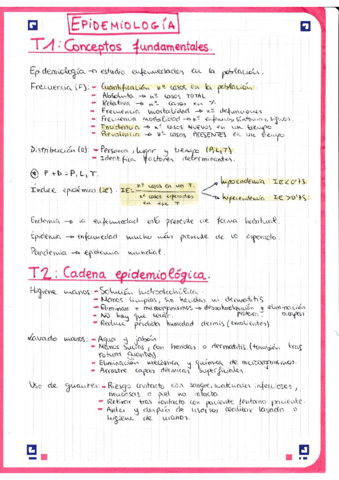 EPIDEMIOLOGÍA
T1: Conceptos fundamentales.
Epidemiología → estudio enfermedades en la población.
Frecuencia (F): - Cuantificación nº casos en la población
- Absoluta → nº casos TOTAL
- Relativa → nº casos en %
- Frecuencia mortalidad → nº defunciones
- Frecuencia morbilidad → nº enfermos, síntomas, signos.
- Incidencia → nº casos NUEVOS en un tiempo
- Prevalencia → nº casos PRESENTES en un tiempo
Distribución (D): - Persona, lugar y tiempo (P, L, T).
- Identifica factores determinantes.
F + D = P, L, T.
Índice epidémico (IE): IE = nº casos en un T. / nº casos esperados T
hipoendemia IE<0'75
hiperendemia IE>0'75
Endemia → la enfermedad está presente de forma habitual.
Epidemia → enfermedad mucho más presente de lo esperado.
Pandemia → epidemia mundial.
T2: Cadena epidemiológica.
Higiene manos - Solución hidroalcohólica
- Manos limpias, sin heridas ni dermatitis
- Eliminan + microorganismos → eliminación
- No hay que secar.
- Reduce pérdida humedad dermis (emolientes)
Lavado manos: - Agua y jabón
- Manos sucias, con heridas o dermatitis (también tras rotura guantes).
- Eliminación mecánica y química de microorganismos.
- Arrastre capas dérmicas superficiales.
Uso de guantes: - Riesgo contacto con sangre, materiales infecciosos,
mucosas o piel no intacta.
- Retirar tras contacto con paciente/entorno paciente.
- Antes y después de usarlos realizar lavado o
higiene de manos.